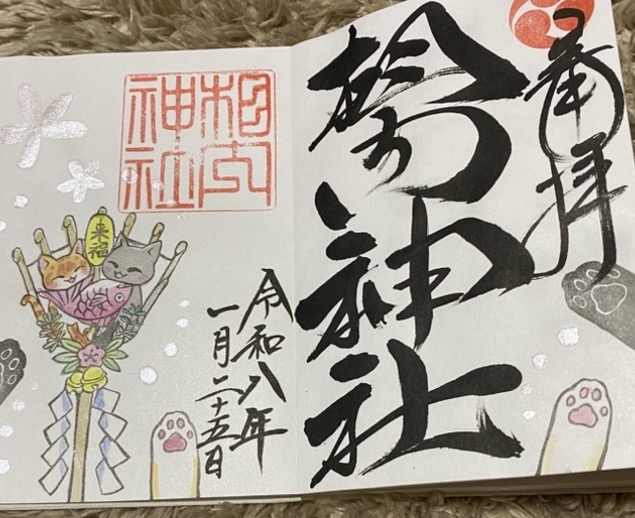 奉拝
相内神社
相内
神社
令和八年
一月二十五日
来福